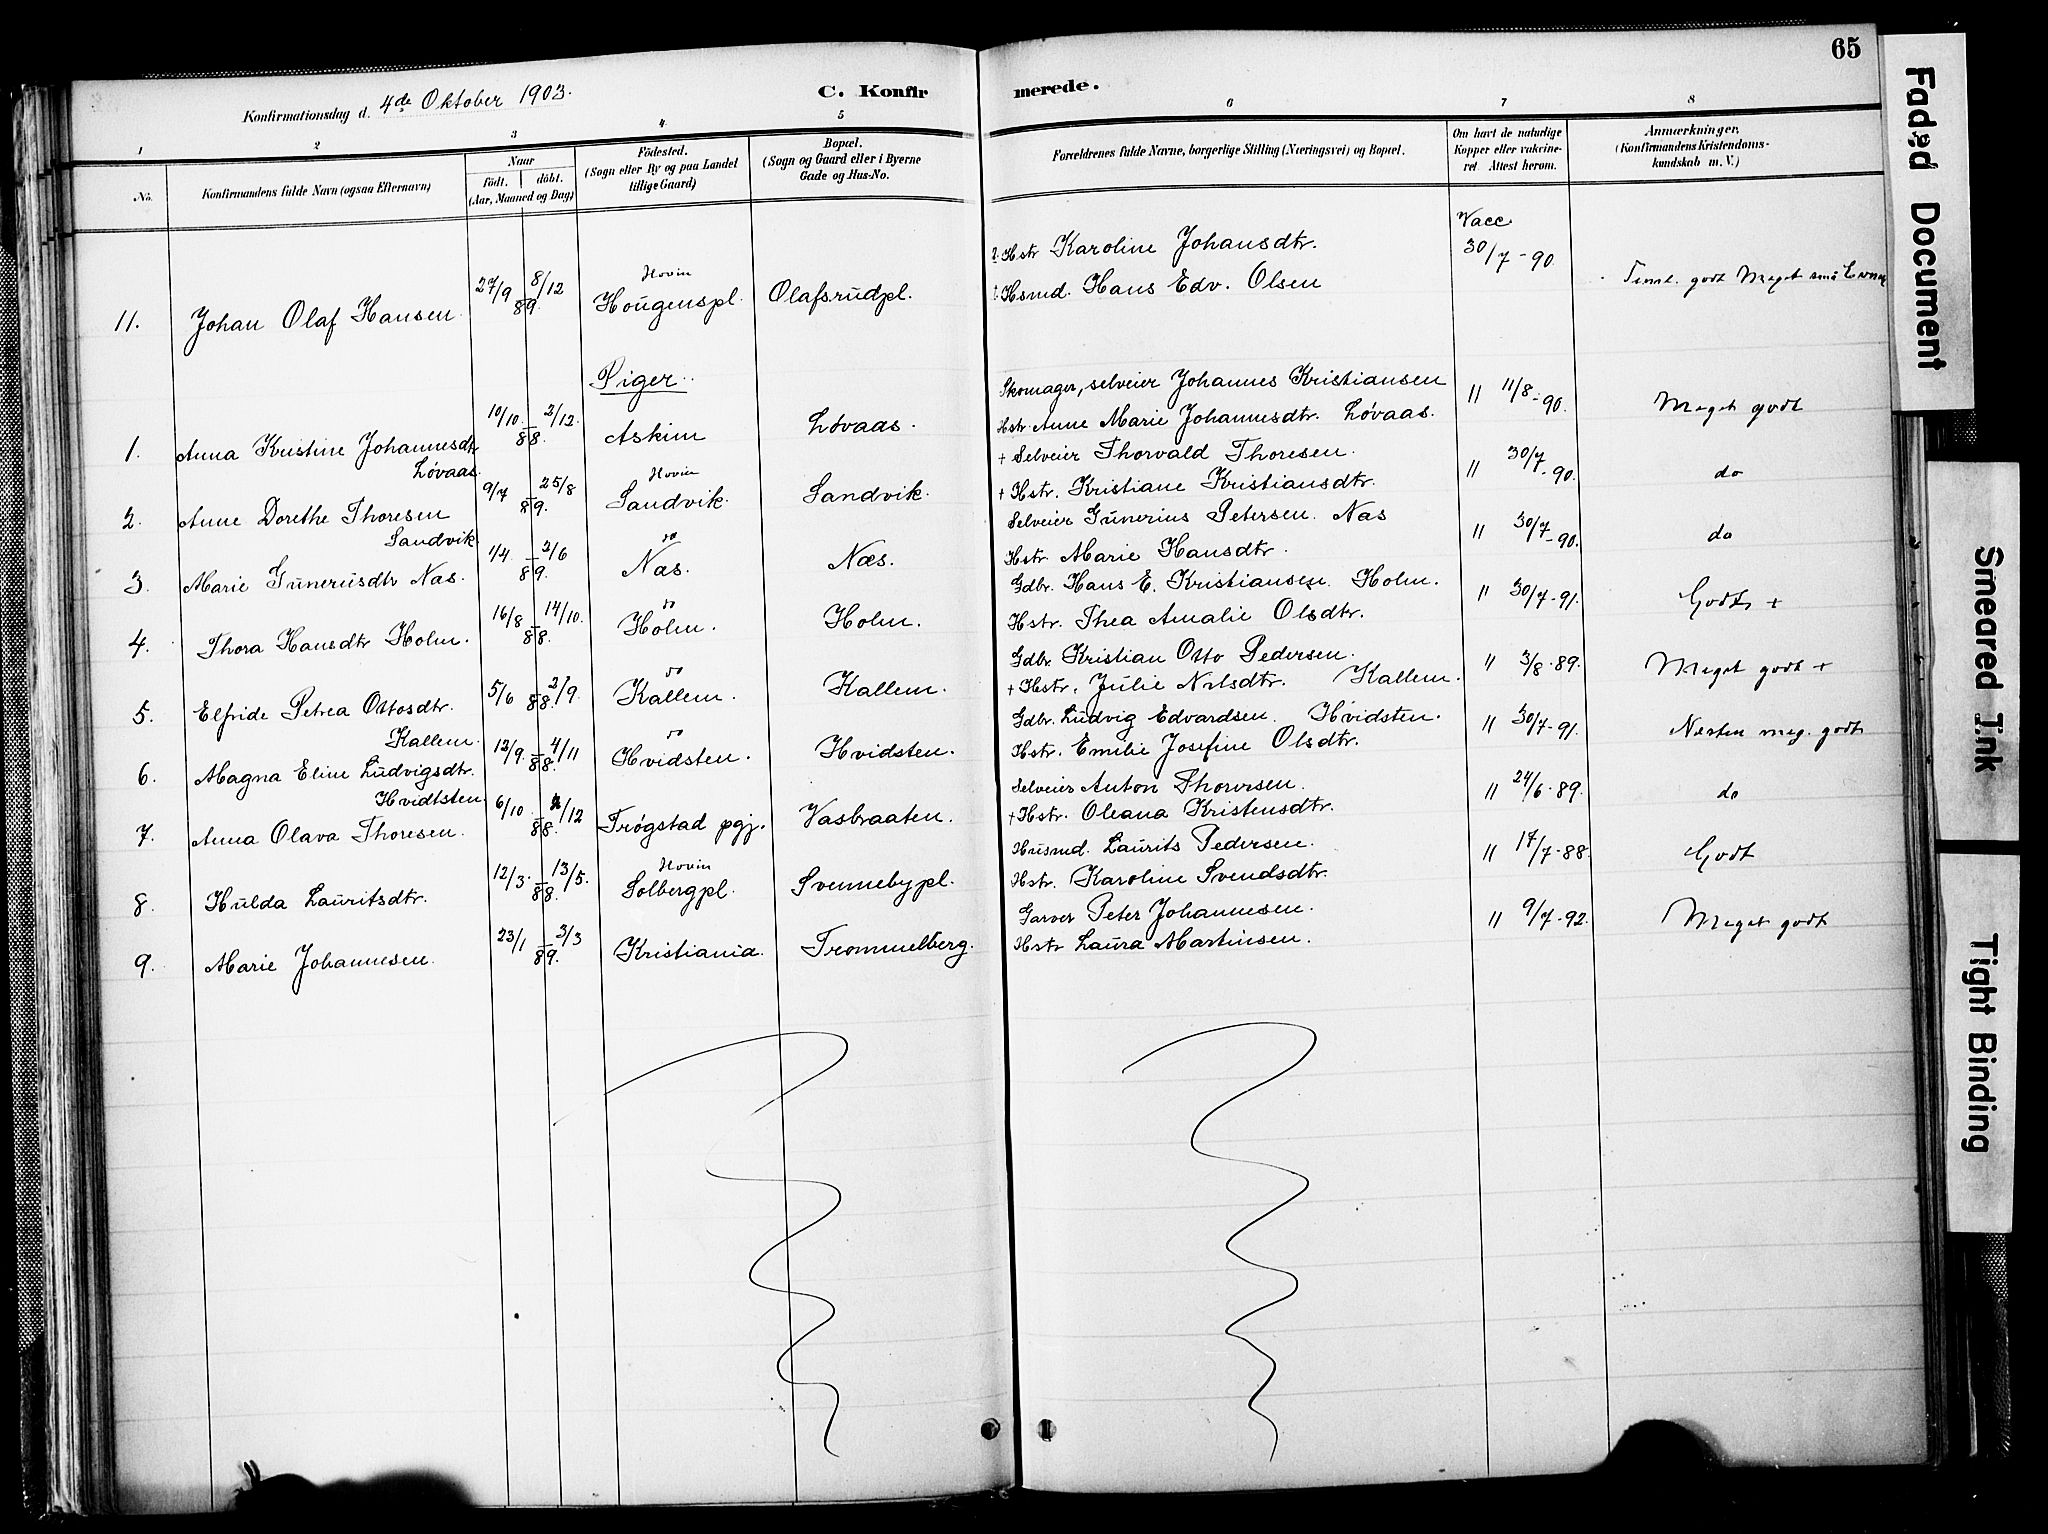 65
Konfirmationsdag d. 4de Oktober 1903.
C. Konfirmerede.
1 2 3 4. 5 6 7 8
No.
Konfirmandens fulde Navn (ogsaa Efternavn)
Naar
født. døbt.
(Aar, Maaned og Dag)
Födested.
(Sogn eller By og paa Landet
tillige Gaard)
Bopæl.
(Sogn og Gaard eller i Byerne
Gade og Hus-No.
Forældrenes fulde Navne, borgerlige Stilling (Næringsvei) og Bopæl.
Om havt de naturlige
Kopper eller vakcine-
ret Attest herom.
Anmærkninger,
(Konfirmandens Kristendoms-
kundskab m. V.)
11. Johan Olaf Hansen 27/9 8/12 89. Hovin Hougenspl. Olafsrudpl. Hstr Karoline Johansdtr. Vacc 30/7-90
Hsmd. Hans Edv. Olsen Teml. godt Meget små Evner
Piger.
1. Anna Kristine Johannesdtr Løvaas. 10/10. 2/12. 88. Askim Løvaas. Skomager, selveier Johannes Kristiansen " 11/8-90. Meget godt
Hstr. Anne Marie Johannesdtr. Løvaas.
2. Anne Dorethe Thoresen Sandvik 9/7 25/8 89. Hovin Sandvik. Sandvik. + Selveier Thorvald Thoresen. " 30/7-90. do
+ Hstr. Kristiane Kristiansdtr.
3. Marie Gunerusdtr Næs. 1/4. 2/6 89. do Næs. Næs. Selveier Gunerius Petersen. Næs " 30/7-90. do
Hstr. Marie Hansdtr.
4. Thora Hansdtr Holm. 16/8 14/10. 88. do Holm. Holm. Gdbr. Hans E. Kristiansen. Holm. " 30/7-91. Godt +
Hstr. Thea Amalie Olsdtr.
5. Elfride Petrea Ottosdtr. Kallem. 5/6 2/9. 88. do Kallem. Kallem. Gdbr. Kristian Otto Pedersen. " 3/8-89. Meget godt +
+ Hstr. Julie Nilsdtr. Kallem.
6. Magna Eline Ludvigsdtr. Hvidtsten 12/9. 4/11 88. do Hvidsten. Hvidsten. Gdbr. Ludvig Edvardsen. Hvidsten. " 30/7-91. Næsten meg. godt
Hstr. Emilie Josefine Olsdtr.
7. Anna Olava Thoresen. 6/10 /12 88. Trøgstad pgj. Vasbraaten. Selveier Anton Thoresen. " 24/6-89. do
+ Hstr. Oleana Kristensdtr.
8. Hulda Lauritsdtr. 12/3. 13/5. 88. Hovin Solbergpl. Svennebypl. Husmd. Laurits Pedersen. " 17/7-88. Godt
Hstr. Karoline Svendsdtr.
9. Marie Johannesen. 23/1 3/3 89. Kristiania. Trommelberg. Garver Peter Johannesen. " 9/7-92. Meget godt
Hstr Laura Martinsen.
Faded Document
Smeared Ink
Tight Binding